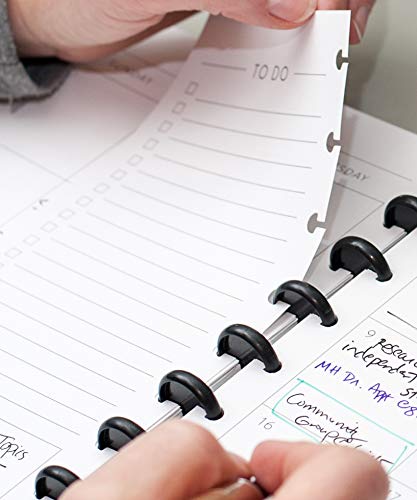 TO DO
SDAY
9
Research
independent
MH Dr. Appt
Community
Group
16
Topics